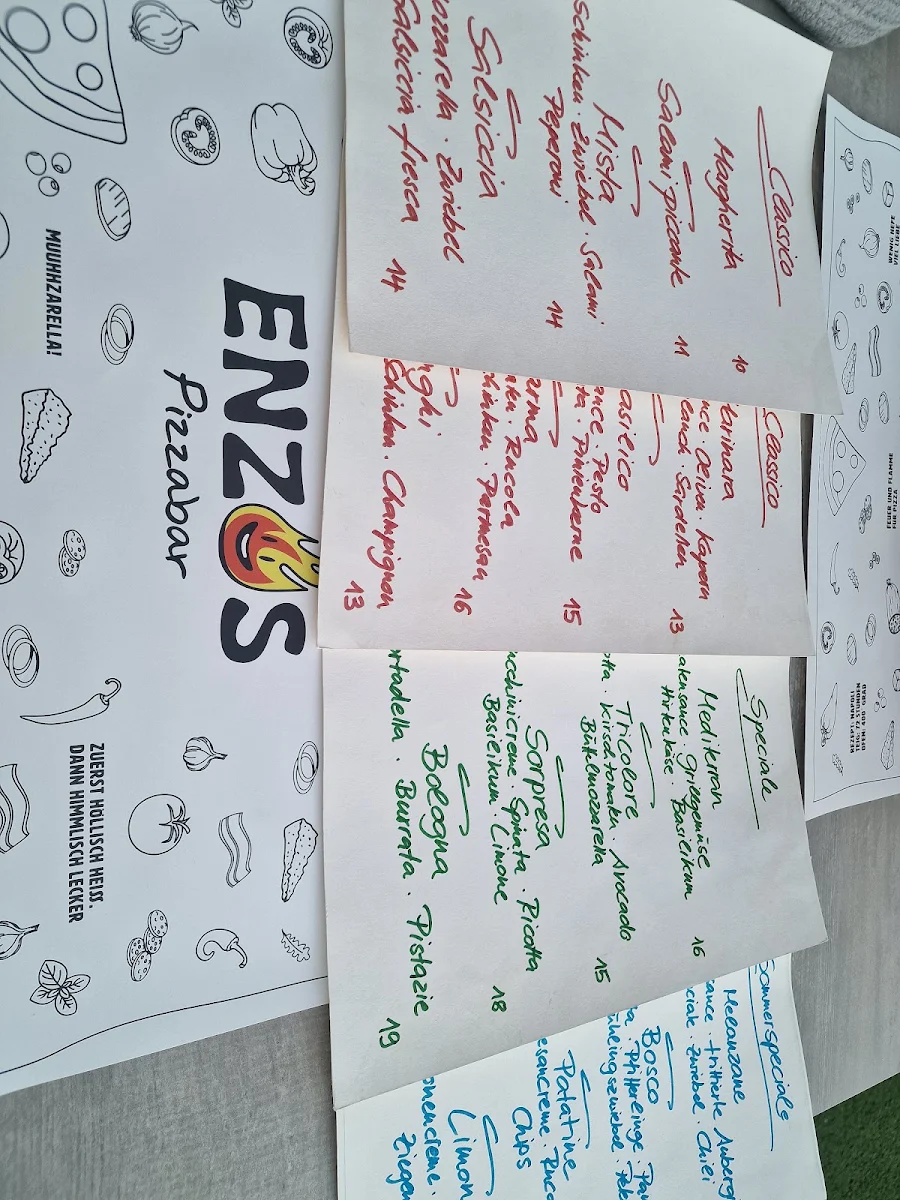 ENZOS
Pizzabar
MUUHHZARELLA!
ZUERST HÖLLISCH HEISS.
DANN HIMMLISCH LECKER
Classico
Margherita
10
Salami piccante
11
Mista
Schinken · Zwiebel · Salami
Peperoni
14
Salsiccia
ozzarella · Zwiebel
Salsiccia fresca
14
Classico
Marinara
nce · Oliven · Kapern
lauch · Sardellen
13
asilico
ance · Pesto
ta · Pinienkerne
15
arma
nken · Rucola
hinken · Parmesan
16
nghi
Schinken · Champignon
13
Speciale
Mediterran
alensance · grillgemüse
Hirtenkäse · Basilikum
16
Tricolore
otta · Kirschtomaten · Avocado
Büffelmozzarella
15
Sorpresa
ucchinicreme · Spinata · Ricotta
Basilikum · Limone
18
Bologna
rtadella · Burrata · Pistazie
19
Sommerspeciale
Melanzane
sance · frittierte Auberg
ciale · Zwiebel · Chili
Bosco
Pfifferlinge · Pa
ühlingszwiebel
Patatine
esancreme · Ruco
Chips
Limon
onencreme ·
Ziegen
WENIG HEFE
VIEL LIEBE
FEUER UND FLAMME
FÜR PIZZA
OFEN: 400 GRAD
TEIG: 72 STUNDEN